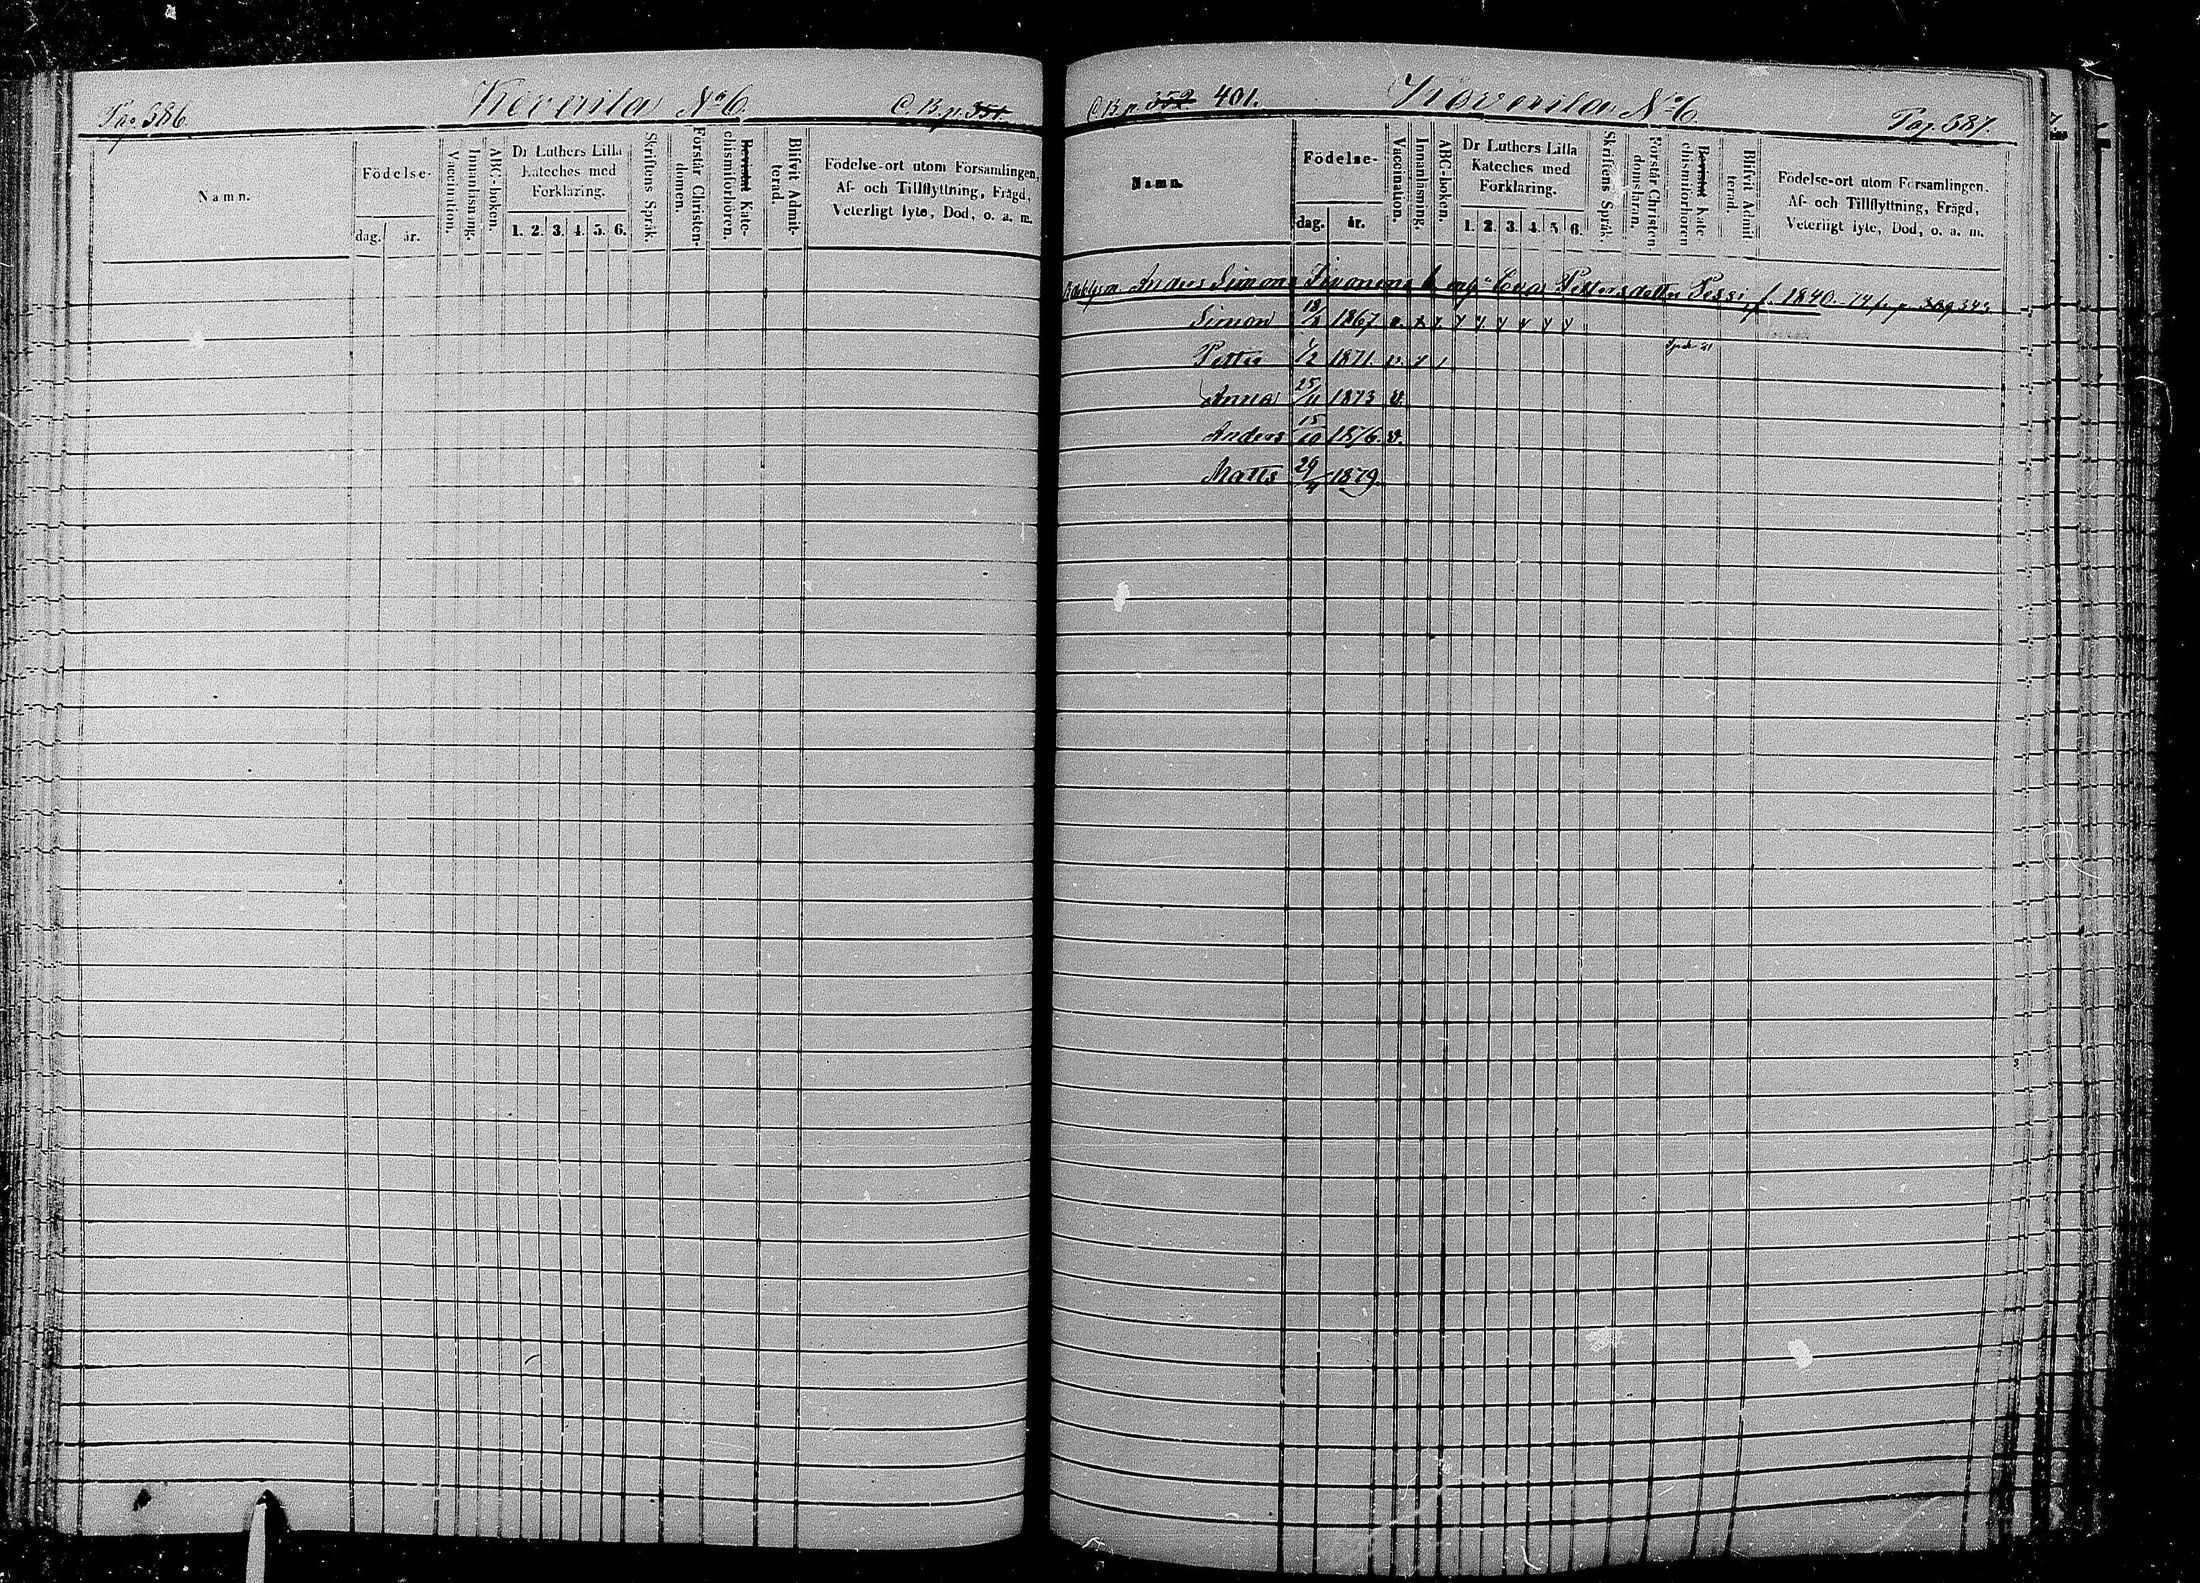 Pag 386.
Koverila No 6.
C.B.p. 351
Namn.
Födelse-
dag. år.
Vaccination.
Innanläsning.
ABC-boken.
Dr Luthers Lilla
Kateches med
Förklaring.
1. 2. 3. 4. 5. 6.
Skriftens Språk.
Förstår Christen-
domen.
Bevistat Kate-
chismiförhören.
Blifvit Admit-
terad.
Födelse-ort utom Församlingen,
Af- och Tillflyttning, Frägd,
Veterligt lyte, Död, o. a. m.
C.B.p. 352. 401.
Koverila No 6.
Pag. 387.
Namn.
Födelse-
dag. år.
Vaccination.
Innanläsning.
ABC-boken.
Dr Luthers Lilla
Kateches med
Förklaring.
1. 2. 3. 4. 5. 6.
Skriftens Språk.
Förstår Christen
domsläran.
Bevistat Kate
chismiförhören
Blifvit Admit
terad.
Födelse-ort utom Församlingen.
Af- och Tillflyttning, Frägd,
Veterligt lyte, Död, o. a. m.
Anders Simons Pettersdotter Pessi f. 1840
Simon 1867
Petter 1/2 1871. v.
Anna 25/11 1873 v.
Anders 15/10 1876. v.
Matts 29 1879.